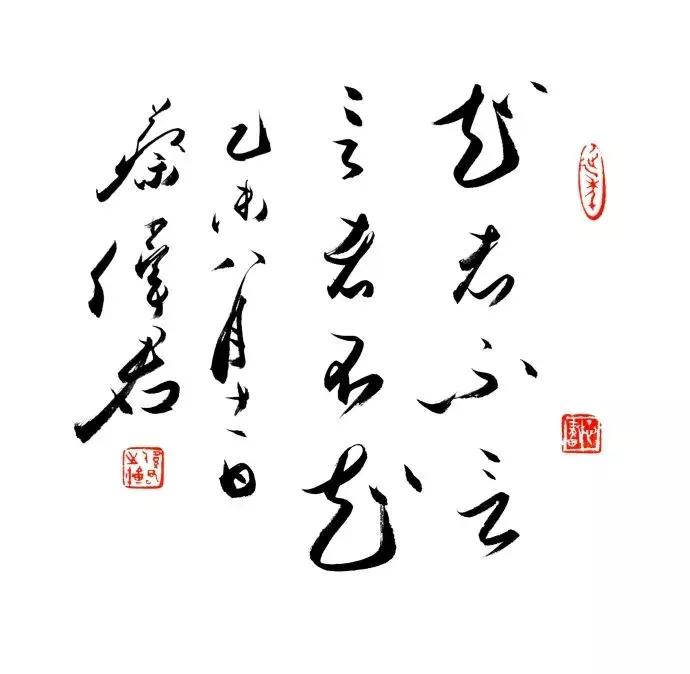 知者不言
言者不知
乙未八月十一日
蔡偉君
延年